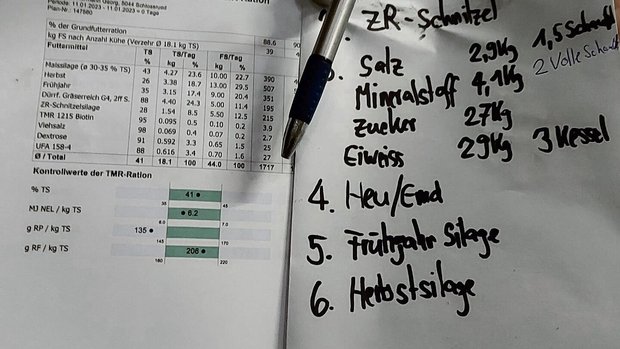 Periode: 11.01.2023 - 11.01.2023 = 0 Tage
Plan-Nr.: 147580
% der Grundfutterration 88.6
kg FS nach Anzahl Kühe (Verzehr Ø 18.1 kg TS) 39
Futtermittel TS % TS/Tag kg % FS/Tag kg %
Maissilage (ø 30-35 % TS) 43 4.27 23.6 10.00 22.7 390
Herbst 26 3.38 18.7 13.00 29.5 507
Frühjahr 35 3.15 17.4 9.00 20.4 351
Dürrf. Gräserreich G4, 2ff S. 88 4.40 24.3 5.00 11.4 195
ZR-Schnitzelsilage 28 1.54 8.5 5.50 12.5 215
TMR 1215 Biotin 95 0.095 0.5 0.10 0.2 3.9
Viehsalz 98 0.069 0.4 0.07 0.2 2.7
Dextrose 91 0.592 3.3 0.65 1.5 25
UFA 158-4 88 0.616 3.4 0.70 1.6 27
Ø / Total 41 18.1 100 44.0 100 1717
Kontrollwerte der TMR-Ration
% TS 41
35 45
MJ NEL / kg TS 6.2
6.0 7.0
g RP / kg TS 135
145 170
g RF / kg TS 208
180 220
ZR-Schnitzel
Salz 2,9Kg 1,5 Schaufl
Mineralstoff 4,1Kg 2 Volle
Zucker 27Kg
Eiweiss 29Kg 3 Kessel
4. Heu/Emd
5. Frühjahr Silage
6. Herbstsilage